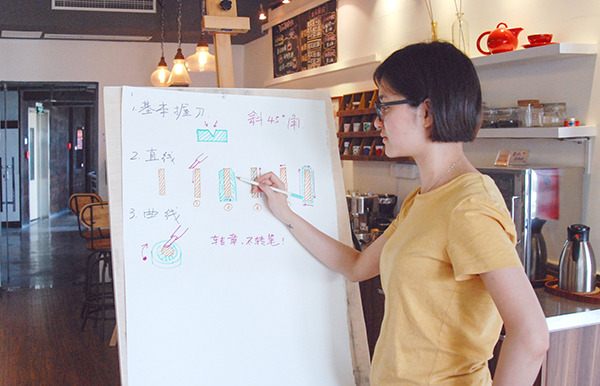 1. 基本握刀
斜45°角
2. 直线
3. 曲线
转章,不转笔!